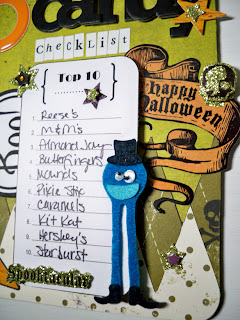 candy
CHECKLIST
Top 10
HAPPY
HALLOWEEN
1. Reese's
2. m&m's
3. Almond Joy
4. Butterfingers
5. Mounds
6. Pixie Stix
7. Caramels
8. Kit Kat
9. Hershey's
10. Starburst
Spooktacular